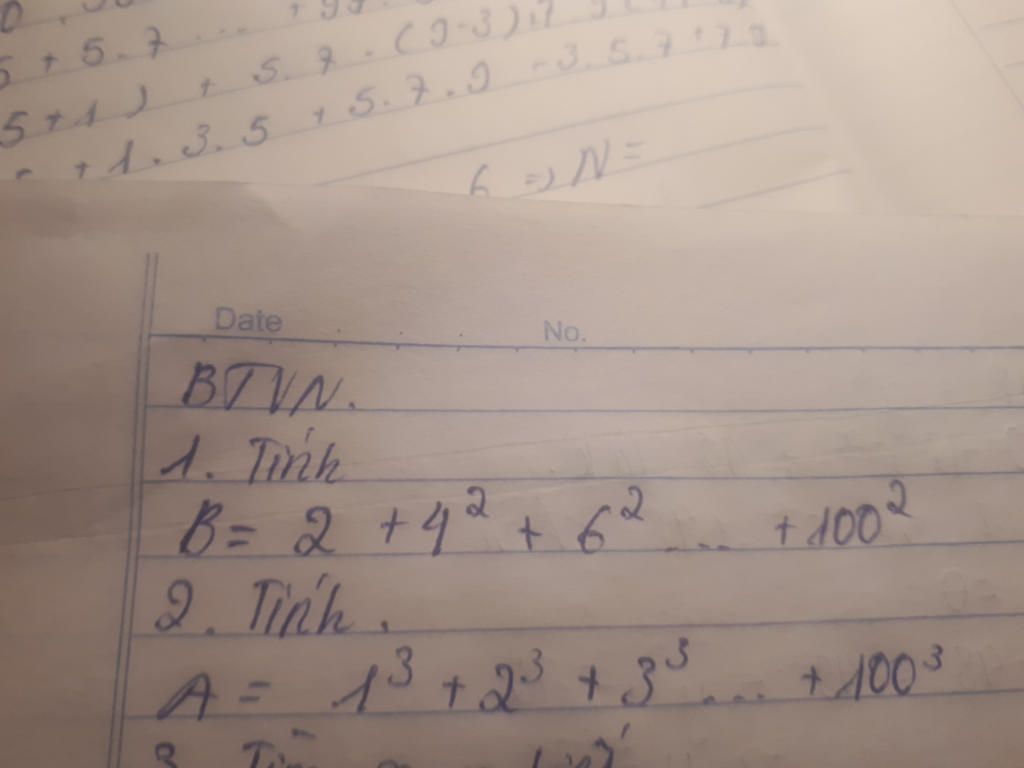 5 + 5 . 7 ...
5 + 1 ) + 5 . 7 . ( 9 - 3 )
+ 1 . 3 . 5 + 5 . 7 . 9 - 3 . 5 . 7 + 7 9
6 => N =
Date No.
BTVN.
1. Tính
B = 2 + 4² + 6² ... + 100²
2. Tính.
A = 1³ + 2³ + 3³ ... + 100³
3